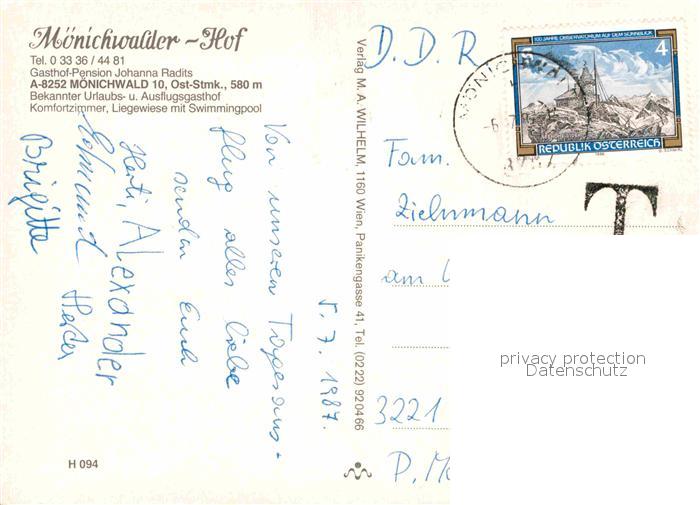 Mönichwalder-Hof
Tel. 0 33 36 / 44 81
Gasthof-Pension Johanna Radits
A-8252 MÖNICHWALD 10, Ost-Stmk., 580 m
Bekannter Urlaubs- u. Ausflugsgasthof
Komfortzimmer, Liegewiese mit Swimmingpool
5. 7. 1987.
Von unserem Tagesaus-
flug alles liebe
senden Euch
Herti, Alexander
Edmund
Brigitte
H 094
Verlag M. A. WILHELM, 1160 Wien, Panikengasse 41, Tel. (0222) 920466
D. D. R
Fam.
Ziehnmann
am
3221
P.
100 JAHRE OBSERVATORIUM AUF DEM SONNBLICK
4
REPUBLIK ÖSTERREICH
T
privacy protection
Datenschutz